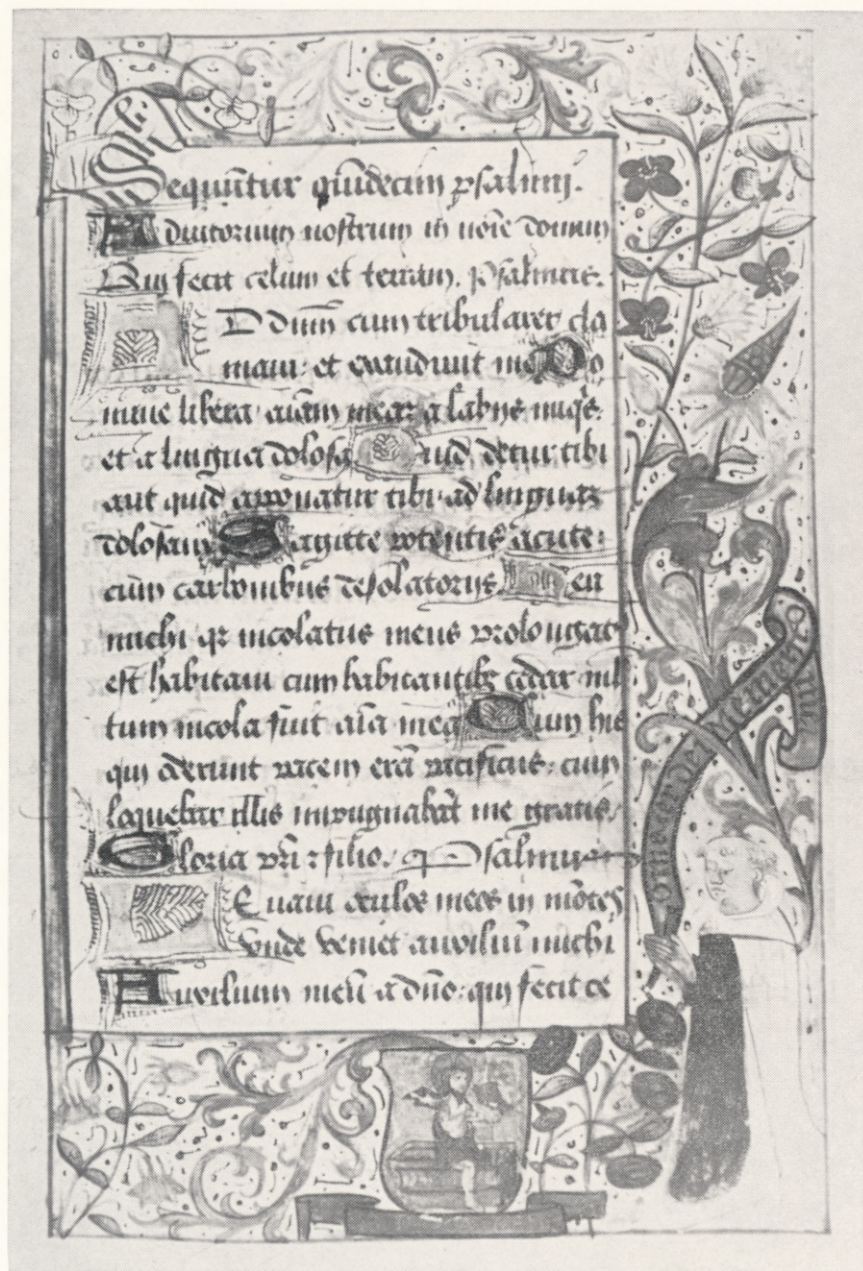 Sequūtur quīdecim psalmi.
Adiutorium nostrum in noīe domini
Qui fecit celum et terram. Psalmus.
AD dnm̄ cum tribularer cla
maui: et exaudiuit me Do
mine libera aīam meaz a labijs iniq̄s:
et a lingua dolosa Quid detur tibi
aut quid apponatur tibi: ad linguaz
dolosam Sagitte potentis acute:
cum carbonibus desolatorijs. Heu
michi qr incolatus meus prolongatꝰ
est habitaui cum habitantibꝫ cedar mul
tum incola fuit aīa mea Cum hiis
qui oderunt pacem erā pacificus: cum
loquebar illis impugnabāt me gratis.
Gloria pri̅ ⁊ filio. Psalmus
LEuaui oculos meos in mōtes
vnde veniet auxiliū michi
Auxilium meū a dn̄o: qui fecit ce
o mater dei memento mei